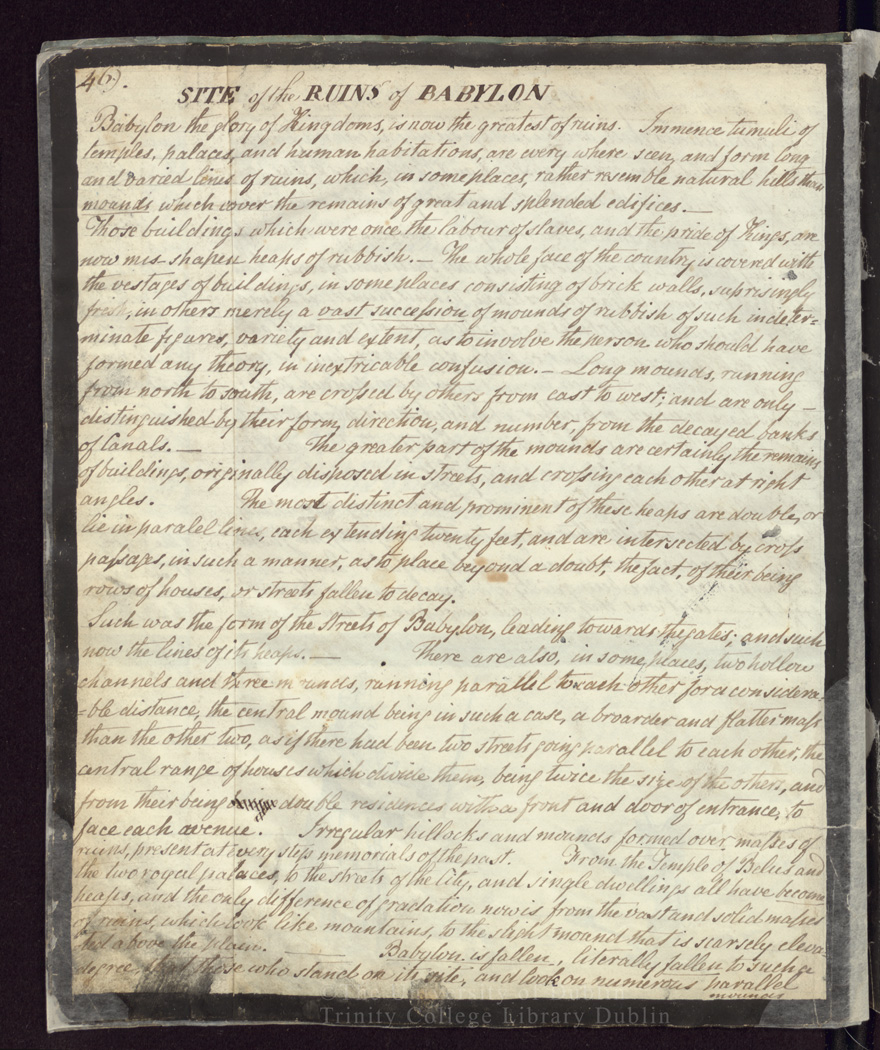 46).
SITE of the RUINS of BABYLON
Babylon the glory of Kingdoms, is now the greatest of ruins. Immence tumuli of
temples, palaces, and human habitations, are every where seen, and form long
and varied lines of ruins, which, in some places, rather resemble natural hills than
mounds which cover the remains of great and splended edifices.—
Those buildings which were once the labour of slaves, and the pride of Kings, are
now mis-shapen heaps of rubbish.— The whole face of the country is covered with
the vestages of buildings, in some places consisting of brick walls, suprisingly
fresh, in others merely a vast succession of mounds of rubbish of such indeter=
minate figures, variety and extent, as to involve the person who should have
formed any theory, in inextricable confusion.— Long mounds, running
from north to south, are crossed by others from east to west; and are only —
distinguished by their form, direction, and number, from the decayed banks
of Canals.— The greater part of the mounds are certainly the remains
of buildings, originally disposed in streets, and crossing each other at right
angles. The most distinct and prominent of these heaps are double, or
lie in paralel lines, each extending twenty feet, and are intersected by cross
passages, in such a manner, as to place beyond a doubt, the fact, of their being
rows of houses, or streets fallen to decay.
Such was the form of the Streets of Babylon, leading towards the gates; and such
now the lines of its heaps.— There are also, in some places, two hollow
channels and three mounds, running parallel to each other for a considera=
=ble distance, the central mound being in such a case, a broarder and flatter mass
than the other two, as if there had been two streets going parallel to each other, the
central range of houses which divide them, being twice the size of the others, and
from their being double residences with a front and door of entrance, to
face each avenue. Irregular hillocks and mounds formed over masses of
ruins, present at every step memorials of the past. From the Temple of Belus and
the two royal palaces, to the streets of the City, and single dwellings all have become
heaps, and the only difference of gradation now is from the vast and solid masses
of ruins, which look like mountains, to the slight mound that is scarsely eleva=
ted above the plain. Babylon is fallen, literally fallen to such a
degree, that those who stand on its site, and look on numerous parallel
mounds
Trinity College Library Dublin